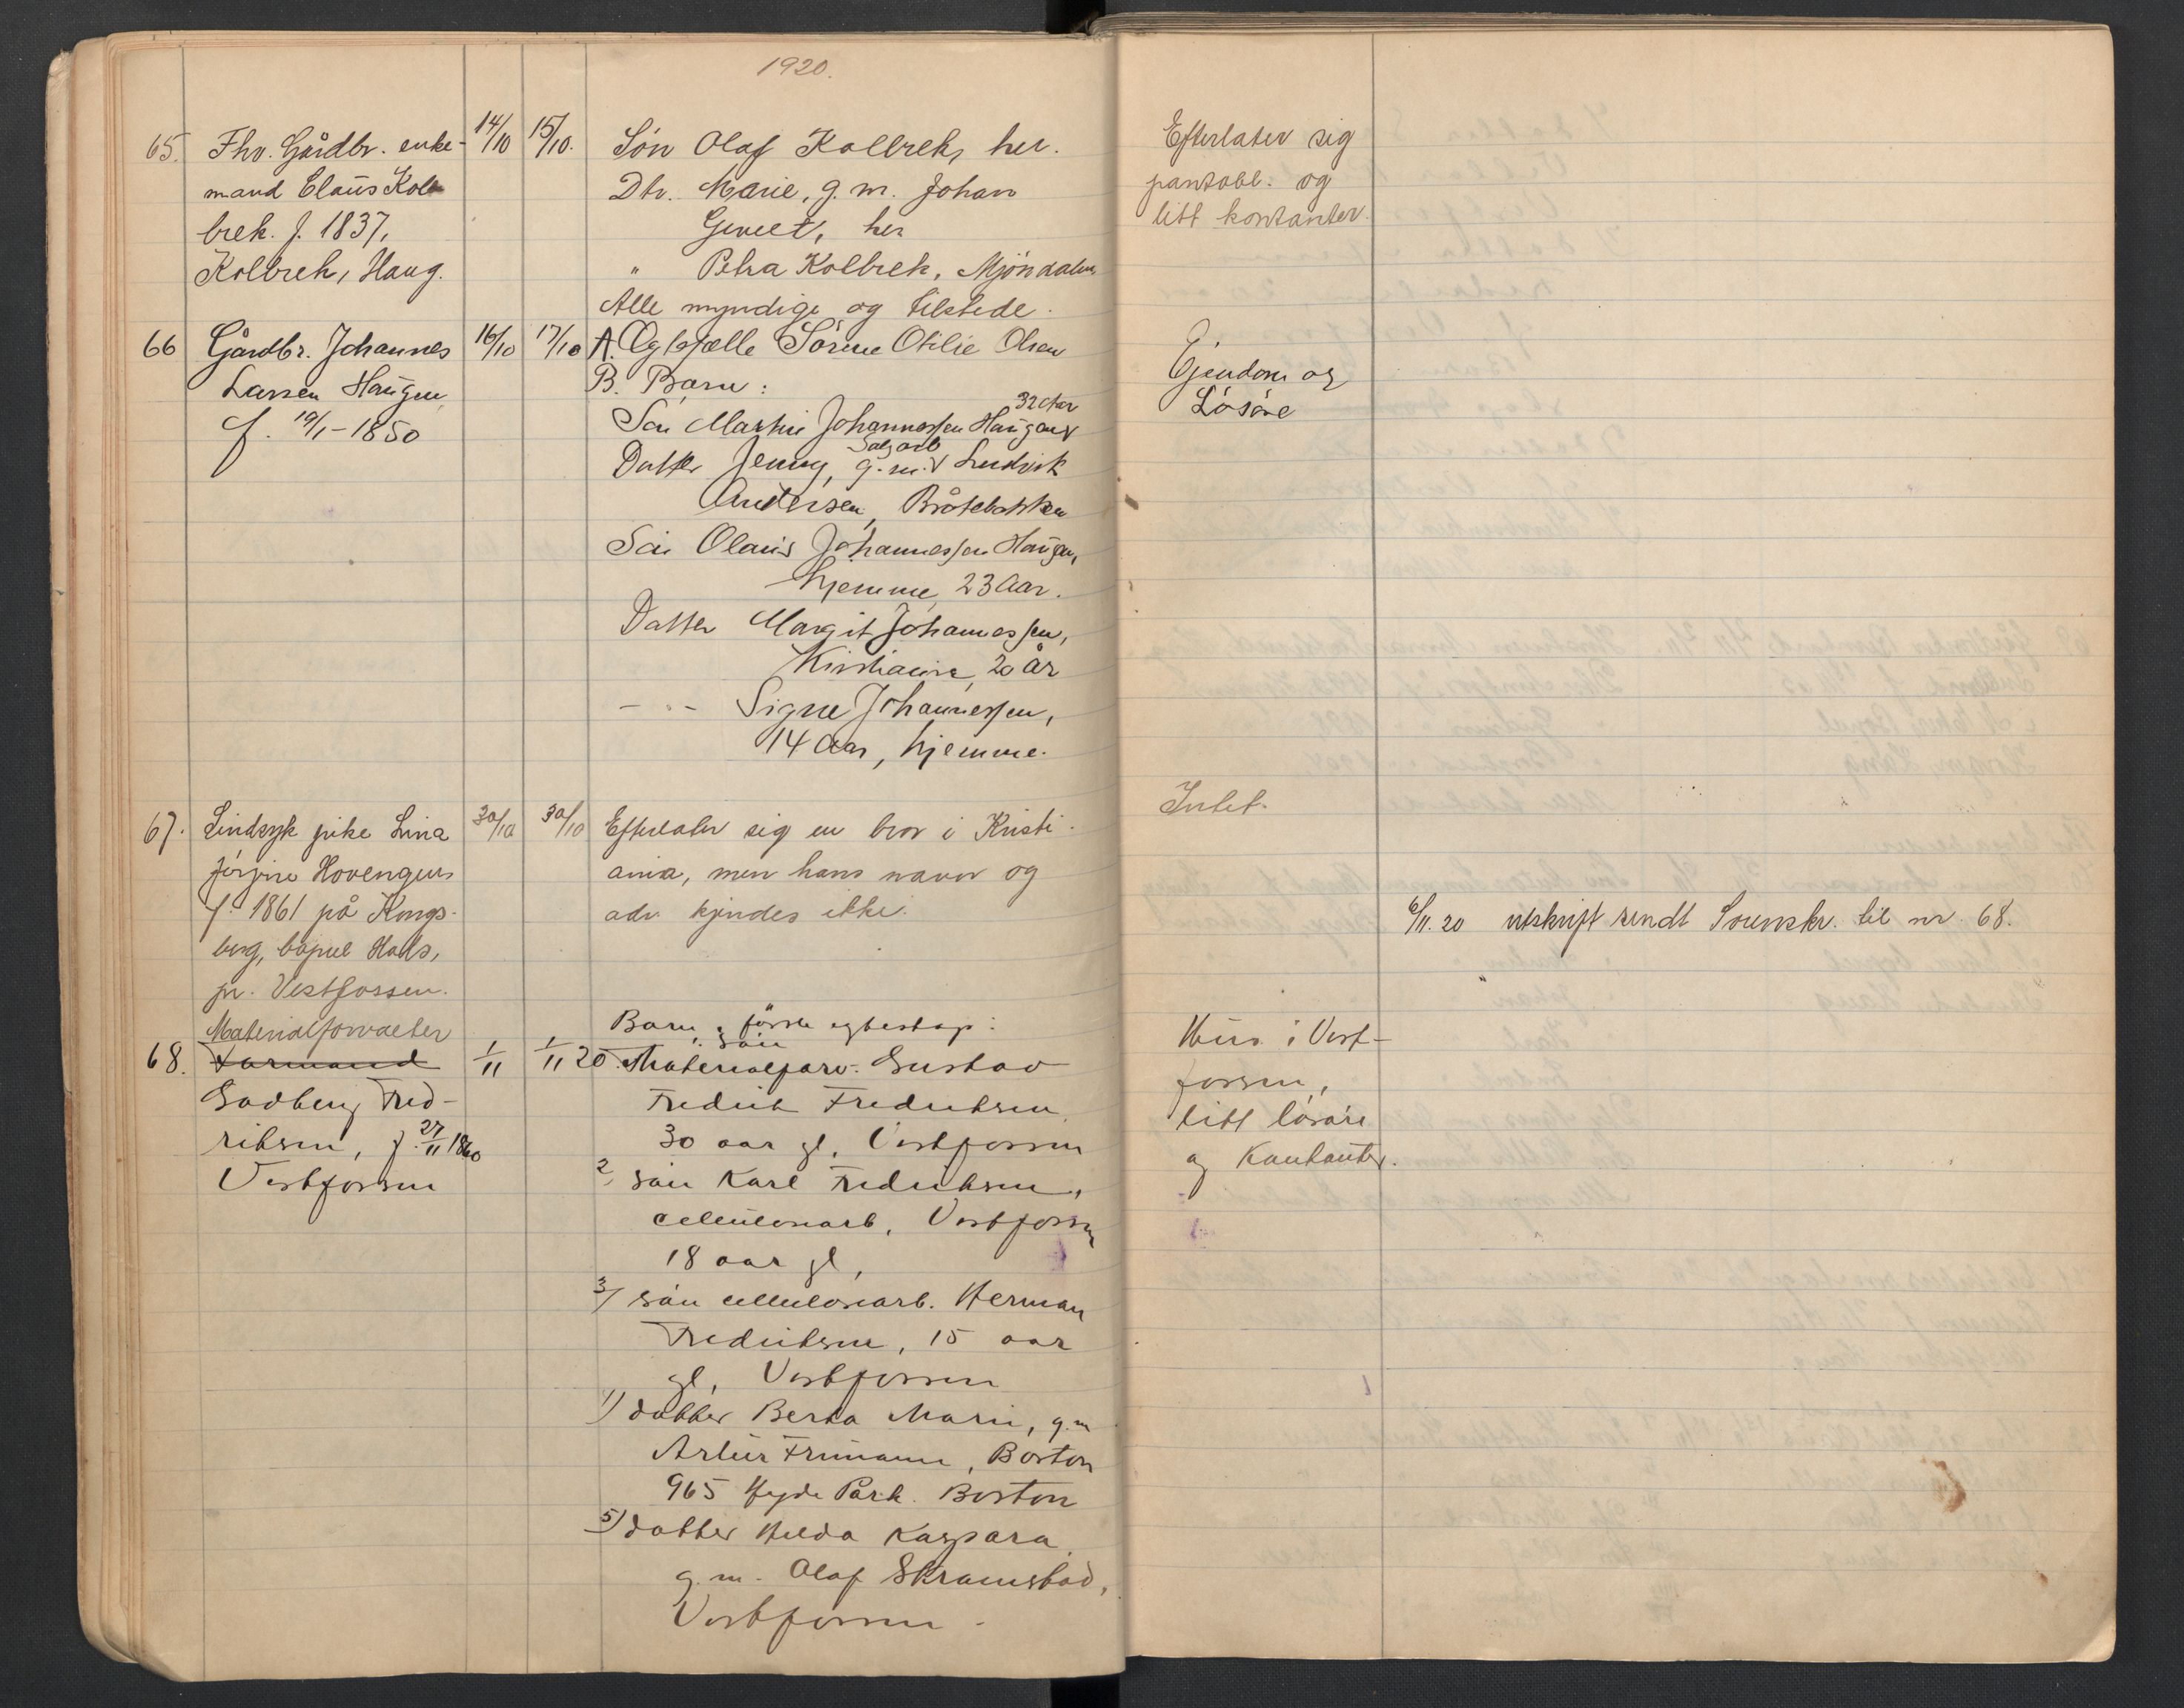 1920.
65. Fhv. Gårdbr. enke-
mand Claus Kol-
brek. f. 1837,
Kolbrek, Haug.
14/10 15/10.
Søn Olaf Kolbrek, her.
Dtr. Marie, g. m. Johan
Gevelt, her
" Petra Kolbrek, Mjøndalen
Alle myndige og tilstede.
Efterlater sig
pantobl. og
litt kontanter.
66 Gårdbr. Johannes
Larsen Haugen
f. 19/1-1850
16/10 17/10
A. Egtefælle Sørine Otilie Olsen
B. Barn:
32 Aar
Søn Martin Johannessen Haugen
Sagarb
Datter Jenny, g. m. Ludvik
Andersen, Bråtebakken
Søn Olaus Johannessen Haugen,
hjemme, 23 Aar.
Datter Margit Johannessen,
Kristiania, 20 år
- " - Signe Johannessen,
14 Aar, hjemme.
Ejendom og
Løsøre
67. Sindsyk pike Lina
Jørgine Hovengen
f. 1861 på Kongs-
berg, bopæl Hals,
pr. Vestfossen.
30/10 30/10
Efterlater sig en bror i Kristi-
ania, men hans navn og
adr. kjendes ikke.
Intet.
6/11.20 utskrift sendt Sorenskr. til nr. 68.
Materialforvalter
68. Formand
Godberg Fred-
riksen, f. 27/11 1860
Vestfossen
1/11 1/11 20.
Barn, første egteskap:
søn
Materialforv. Gustav
Fredrik Fredriksen
30 aar gl, Vestfossen
2, søn Karl Fredriksen,
cellulosearb, Vestfossen
18 aar gl,
3/ søn cellulosearb. Herman
Fredriksen, 15 aar
gl, Vestfossen
4) datter Berta Marie, g. m
Artur Frimann, Boston
965 Hyde Park. Boston
5) datter Hilda Kaspara
g. m. Olaf Skramstad,
Vestfossen.
Hus i Vest-
fossen,
litt løsøre
og Kontanter.